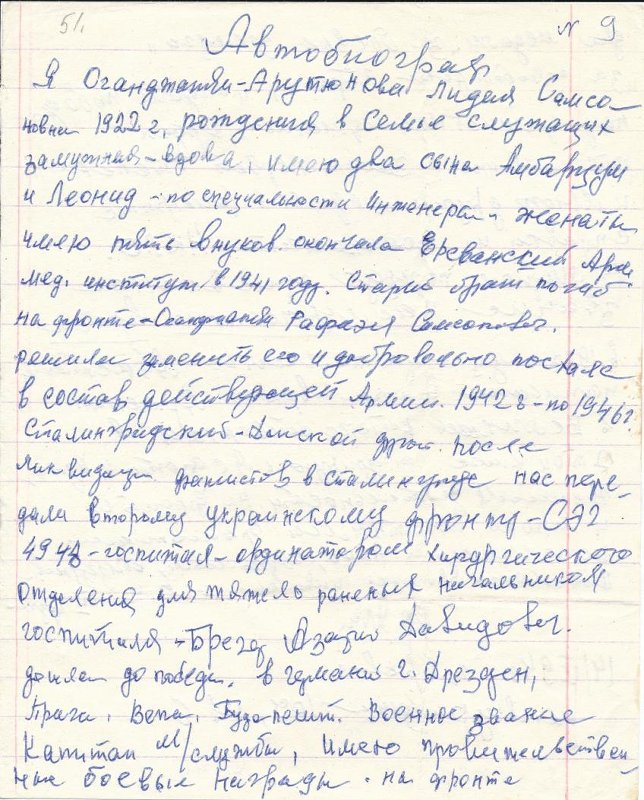 51.
N 9
Автобиограф
Я Оганджанян-Арутюнова Лидия Самсо
новна 1922 г, рождения в семье служащих
замужняя-вдова, имею два сына Амбарцум
и Леонид - по специальности инженера - женаты
имею пять внуков. окончала Ереванский Арм
мед. институт в 1941 году. Старший брат погиб
на фронте - Оганджанян Рафаэл Самсонович.
решила заменить его и добровольно послалс
в состав действующей Армии. 1942 г - по 1946 г.
Сталинградский - Донской фрон. после
ликвидации фашистов в Сталинграде нас пере-
дали второму украинскому фронту - СЭГ
- госпиталь - ординатором хирургического
отделения для тяжело раненых начальником
госпиталя - Азарий Давидович.
дошли до победы. в германии г. Дрезден,
Прага, Вена, Будапешт. Военное звание
Капитан м/службы, имею правительствен-
ные боевые награды. на фронте